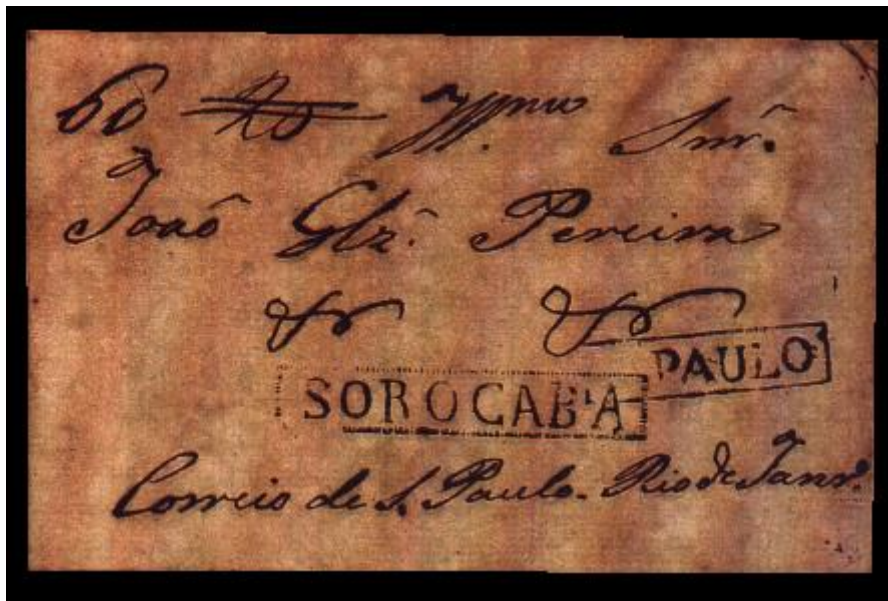 60 Illmo Snr.
João Glz. Pereira
PAULO
SOROCABA
Correio de S. Paulo. Rio de Janro.